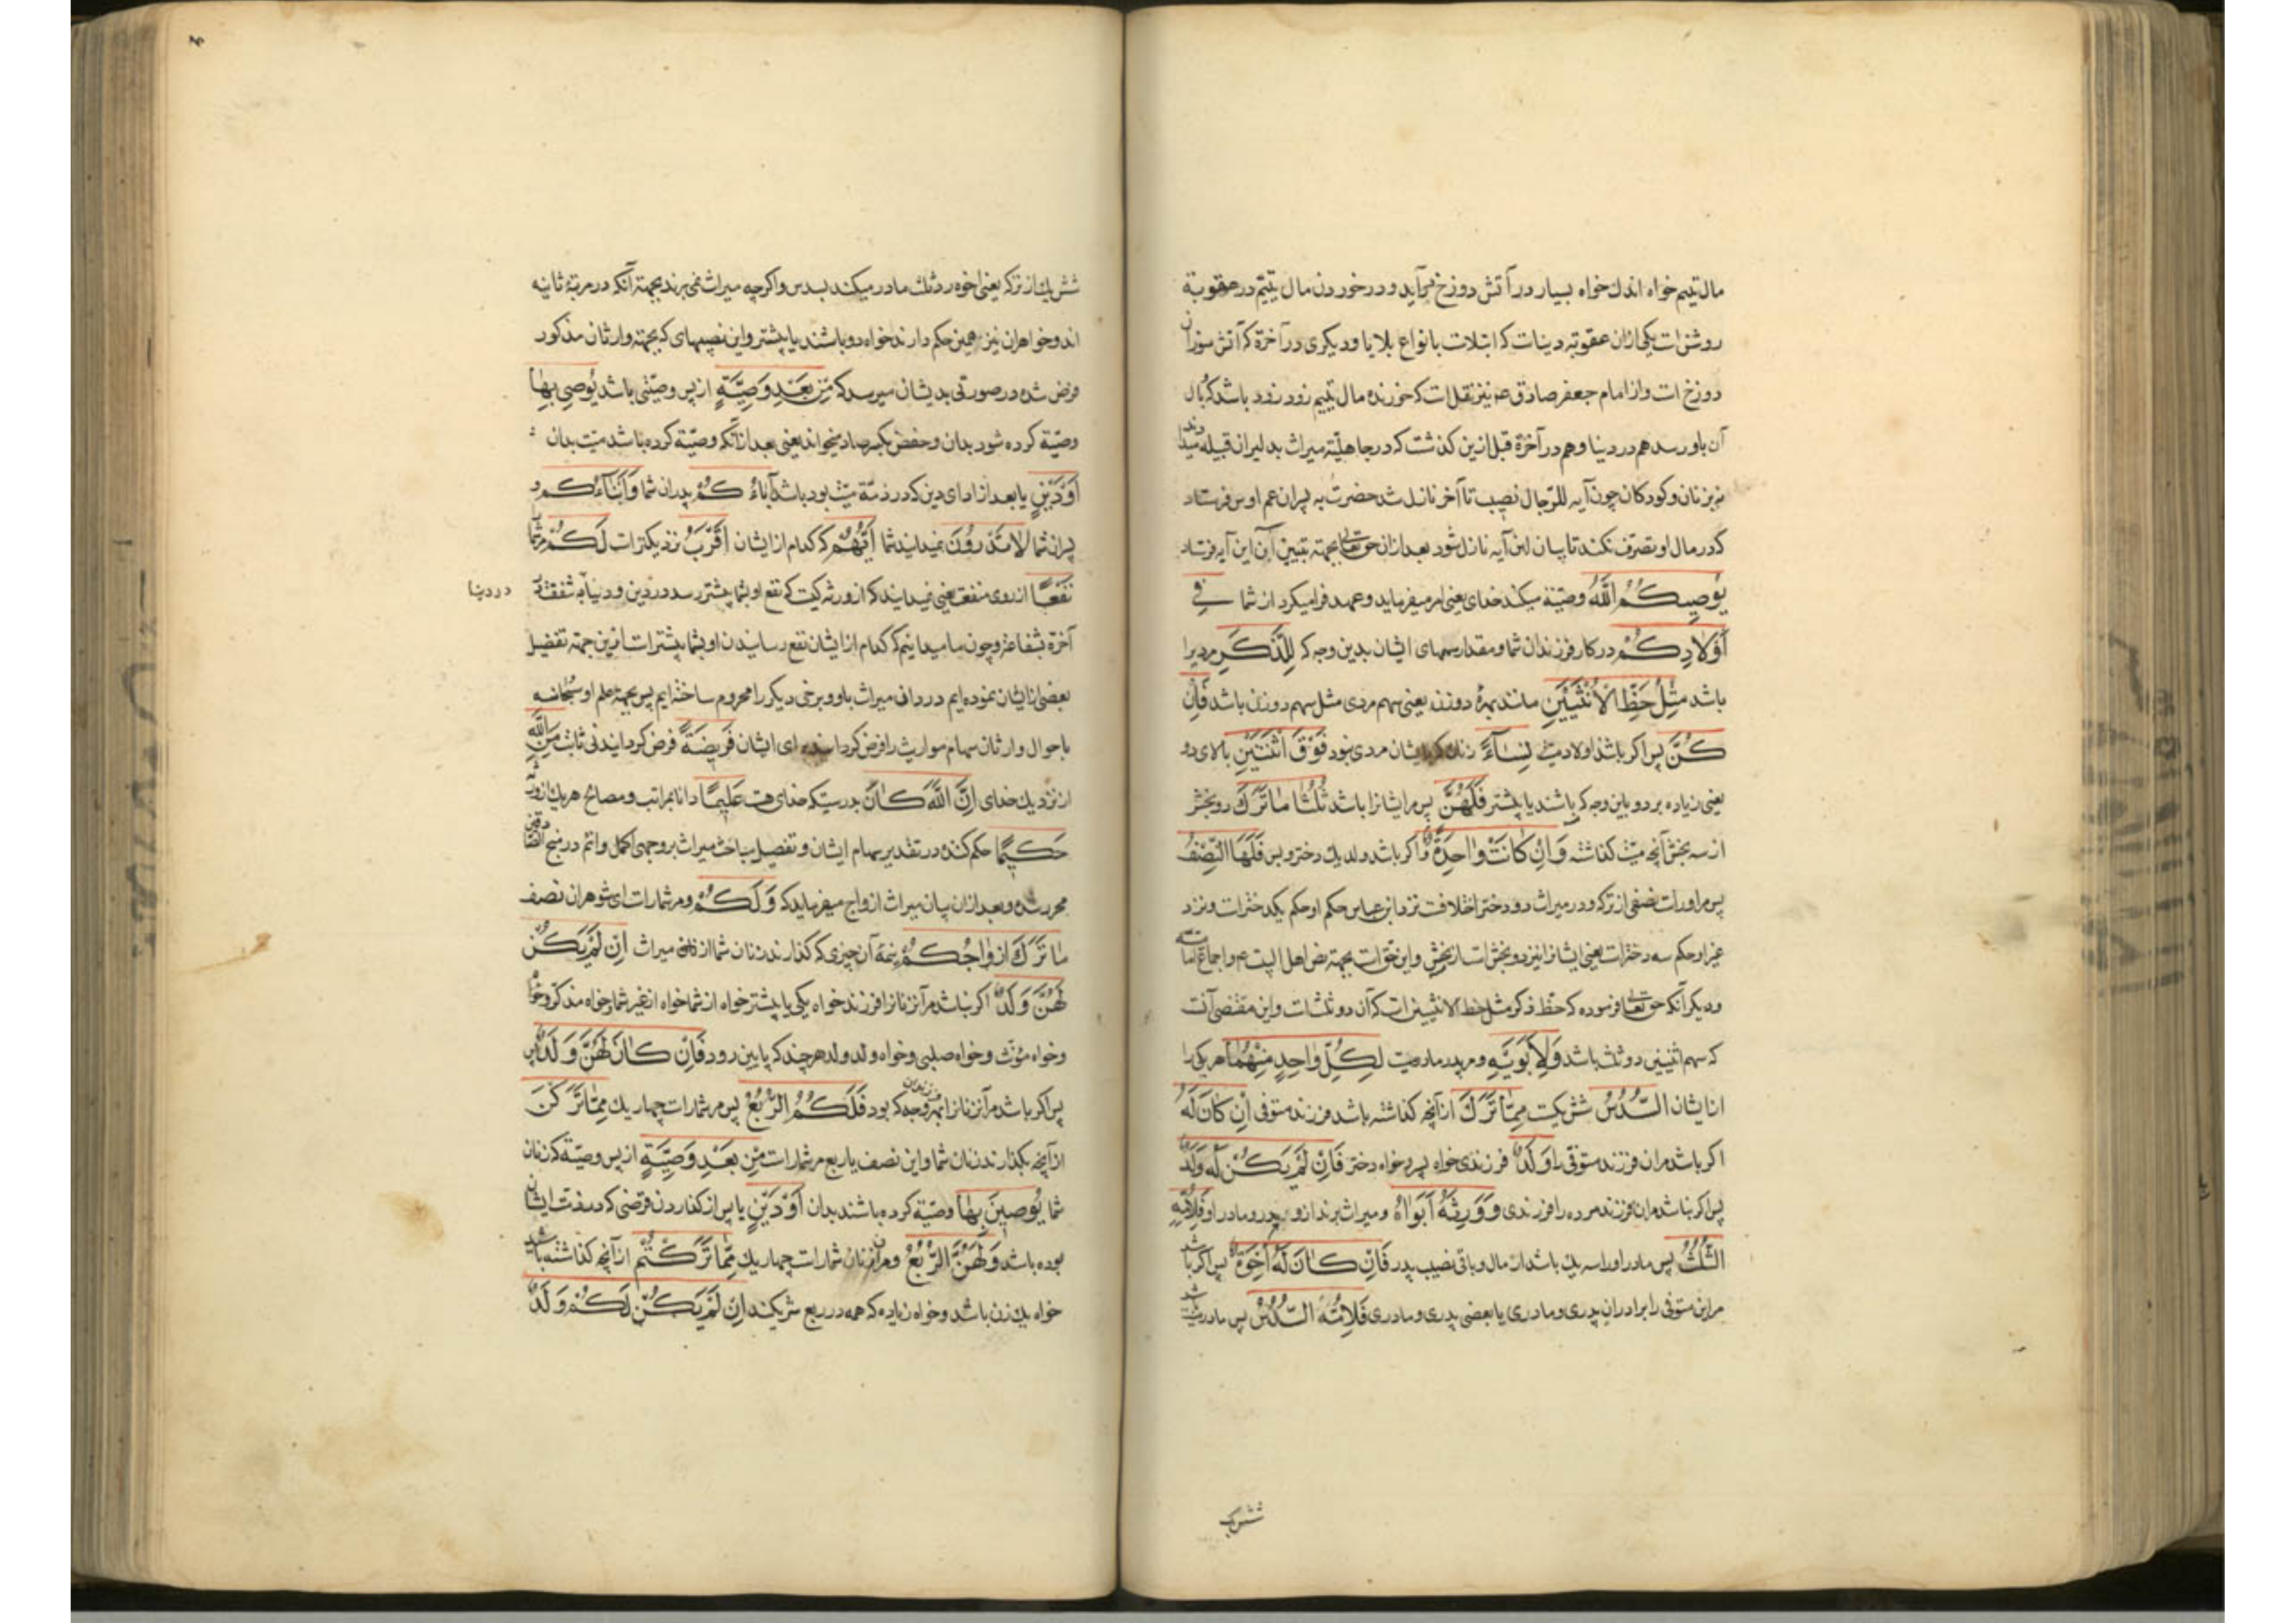 مال یتیم خواه اندك خواه بسیار در آتش دوزخ درآید و در خوردن مال یتیم در عقوبة
روشن است یکی ازان عقوبته دنیاست که ابتلاست بانواع بلایا و دیکری در آخرة که آتش سوزان
دوزخ است و از امام جعفر صادق ع نیز نقلست که خورنده مال یتیم زود زود باشد که وبال
آن باو رسد هم در دنیا و هم در آخرة قبل ازین کذشت که در جاهلیّة میراث بدلیران قبیله میدادند
نه بزنان و کودکان چون آیه للرّجال نصیب تا آخر نازل شد حضرت به پسران عم اوس فرستاد
که در مال او تصرّف نکنند تا بیان این آیه نازل شود بعد ازان حق تعالی بجهته تبیین آن این آیه فرستاد
یُوصِیكُمُ اللّٰهُ وصیّة میکند خدای یعنی امر میفرماید و عهد فرا میکیرد از شما فِی
أَوْلَادِكُمْ در کار فرزندان شما و مقدار سهمهای ایشان بدین وجه که لِلذَّكَرِ مرد را
باشد مِثْلُ حَظِّ الْأُنْثَیَیْنِ مانند بهرۀ دو زن یعنی سهم مردی مثل سهم دو زن باشد فَإِنْ
كُنَّ پس اکر باشد اولاد میّت نِسَآءً زنان که با ایشان مردی نبود فَوْقَ اثْنَتَیْنِ بالای دو
یعنی زیاده بر دو باین وجه که سه باشند یا بیشتر فَلَهُنَّ پس مر ایشانرا باشد ثُلُثَا مَا تَرَكَ دو بخش
از سه بخش آنچه میّت کذاشته وَإِنْ كَانَتْ وَاحِدَةً و اکر باشد ولد یك دختر و بس فَلَهَا النِّصْفُ
پس مر اوراست نصفی از ترکه و در میراث دو دختر اختلافست نزد ابن عباس حکم او حکم یکدخترست و نزد
غیر او حکم سه دخترست یعنی ایشانرا نیز دو بخش است از سه بخش و این حقّ است بجهته نص اهل البیت ع و اجماع امامیّه
و دیکر آنکه حق تعالی فرموده که حظّ ذکر مثل حظ الانثیین است که آن دو ثلث است و این مقتضی آنست
که سهم انثیین دو ثلث باشد وَلِأَبَوَیْهِ و مر پدر و مادر میّت لِكُلِّ وَاحِدٍ مِنْهُمَا هر یکی را
از ایشان السُّدُسُ شش یکیست مِمَّا تَرَكَ از آنچه کذاشته باشد فرزند متوفی إِنْ كَانَ لَهُ
اکر باشد مر ان فرزند متوفّی را وَلَدٌ فرزندی خواه پسر و خواه دختر فَإِنْ لَمْ یَكُنْ لَهُ وَلَدٌ
پس اکر نباشد مر ان فرزند مرده را فرزندی وَوَرِثَهُ أَبَوَاهُ و میراث برند ازو پدر و مادر او فَلِأُمِّهِ
الثُّلُثُ پس مادر اورا سه یك باشد از مال و باقی نصیب پدر فَإِنْ كَانَ لَهُ إِخْوَةٌ پس اکر باشد
مر این متوفی را برادران پدری و مادری یا بعضی پدری و مادری فَلِأُمِّهِ السُّدُسُ پس مادر میّت
شش یک
شش یك از ترکه یعنی اخوه رد ثلث مادر میکند بسدس و اکرچه میراث نمی برند بجهته آنکه در مرتبۀ ثانیه
اند و خواهران نیز همین حکم دارند خواه دو باشند یا بیشتر و این نصیبهای که بجهته وارثان مذکور
فرض شده در صورتی بدیشان میرسد که مِنْ بَعْدِ وَصِیَّةٍ از پس وصیّتی باشد یُوصِی بِهَا
وصیّة کرده شود بدان و حفص بکسر صاد میخواند یعنی بعد ازانکه وصیّة کرده باشد میّت بدان
أَوْ دَیْنٍ یا بعد از ادای دین که در ذمّة میّت بوده باشد آبَاءُكُمْ پدران شما وَأَبْنَاءُكُمْ و
پسران شما لَا تَدْرُونَ نمیدانید شما أَیُّهُمْ که کدام از ایشان أَقْرَبُ نزدیکترست لَكُمْ مر شما
نَفْعًا از روی منفعة یعنی نمیدانید که از ورثه کیست که نفع او بشما بیشتر رسد در دین و دنیا به شفقت
در دنیا
آخرة بشفاعة و چون ما میدانیم که کدام از ایشان نفع رسانیدن او بشما بیشترست ازین جهته تفضیل
بعضی از ایشان نموده ایم در دادن میراث باو و برخی دیکر را محروم ساخته ایم پس بجهته علم او سبحانه
باحوال وارثان سهام مواریث را فرض کردانید ای ایشان فَرِیضَةً فرض کردانیدنی ثابت مِنَ اللّٰهِ
از نزدیك خدای إِنَّ اللّٰهَ كَانَ بدرستیکه خدای هست عَلِیمًا دانا بمراتب و مصالح هر یك از ورثه
حَكِیمًا حکم کننده در تقدیر سهام ایشان و تفصیل مباحث میراث بر وجهی اکمل و اتم در منهج
محرر شده و بعد ازان بیان میراث ازواج میفرماید که وَلَكُمْ و مر شماراست ای شوهران نصف
مَا تَرَكَ أَزْوَاجُكُمْ نیمۀ آن چیزی که کذارند زنان شما از میراث إِنْ لَمْ یَكُنْ
لَهُنَّ وَلَدٌ اکر نباشد مر آن زنانرا فرزند خواه یکی یا بیشتر خواه از شما خواه از غیر شما و خواه مذکر و خواه
و خواه مؤنث و خواه صلبی و خواه ولد ولد هر چند که پایین رود فَإِنْ كَانَ لَهُنَّ وَلَدٌ پس
پس اکر باشد مر آن زنانرا فرزندان بهر وجه که بود فَلَكُمُ الرُّبُعُ پس مر شماراست چهار یك مِمَّا تَرَكْنَ
از آنچه بکذارند زنان شما و این نصف یا ربع مر شماراست مِنْ بَعْدِ وَصِیَّةٍ از پس وصیّة که زنان
شما یُوصِینَ بِهَا وصیّة کرده باشند بدان أَوْ دَیْنٍ یا پس از کذاردن قرضی که در ذمّت ایشان
بوده باشد وَلَهُنَّ الرُّبُعُ و مر زنان شماراست چهار یك مِمَّا تَرَكْتُمْ از آنچه کذاشته باشید
خواه یك زن باشد و خواه زیاده که همه در ربع شریکند إِنْ لَمْ یَكُنْ لَكُمْ وَلَدٌ